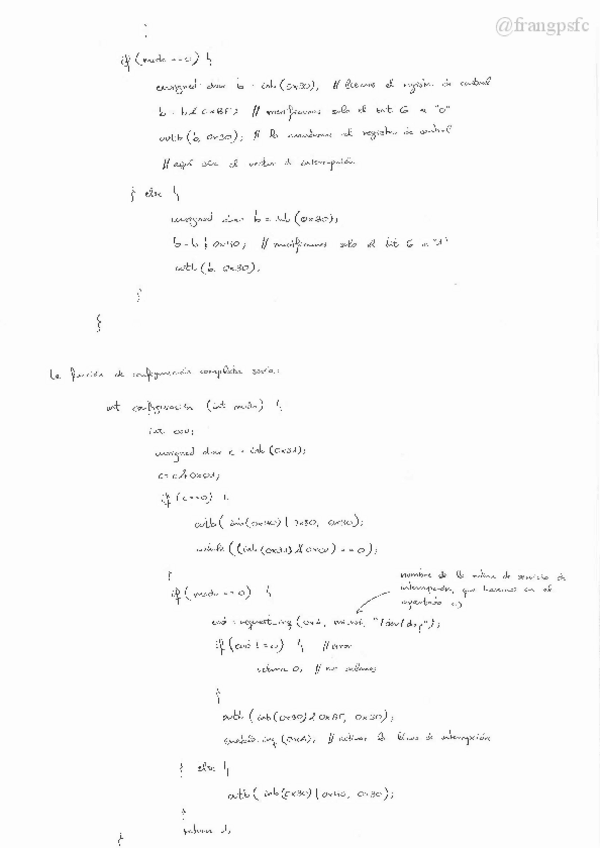 @frangpsfc
:
if (modo == 0) {
unsigned char b = inb (0x30); // leemos el registro de control
b = b & 0xBF; // modificamos solo el bit 6 a "0"
outb (b, 0x30); // lo mandamos al registro de control
// aquí iría el vector de interrupción
} else {
unsigned char b = inb (0x30);
b = b | 0x40; // modificamos solo el bit 6 a "1"
outb (b, 0x30);
}
}
La función de configuración completa sería:
int configuración (int modo) {
int
unsigned char c = inb (0x31);
c = c &
if (c == 0) {
outb ( inb (0x30) | 0x80, 0x30);
while ((inb (0x31) & ) == 0);
}
if (modo == 0) {
nombre de la rutina de servicio de
interrupción, que haremos en el
apartado c)
= request_irq ( "/dev/
if ( != 0) { // error
return 0; // no
}
outb ( inb (0x30) & 0xBF, 0x30);
enable_irq ( // activar la línea de interrupción
} else {
outb ( inb (0x30) | 0x40, 0x30);
}
return 1;
}